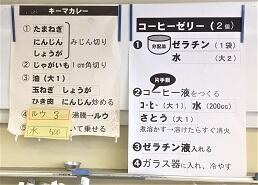 キーマカレー
① たまねぎ
にんじん みじん切り
しょうが
② じゃがいも 1cm角切り
③ 油(大1)
玉ねぎ しょうが
ひき肉 にんじん炒める
④ ルウ 3 沸騰→ルウ
水 500
⑤ いて乗せる
コーヒーゼリー(2個)
① 分配皿 ゼラチン(1袋)
水(大2)
片手鍋
② コーヒー液をつくる
コーヒー(大1) 水(200cc)
さとう(大1)
煮溶かす→溶けたらすぐ消火
③ ゼラチン液入れる
④ ガラス器に入れ、冷やす